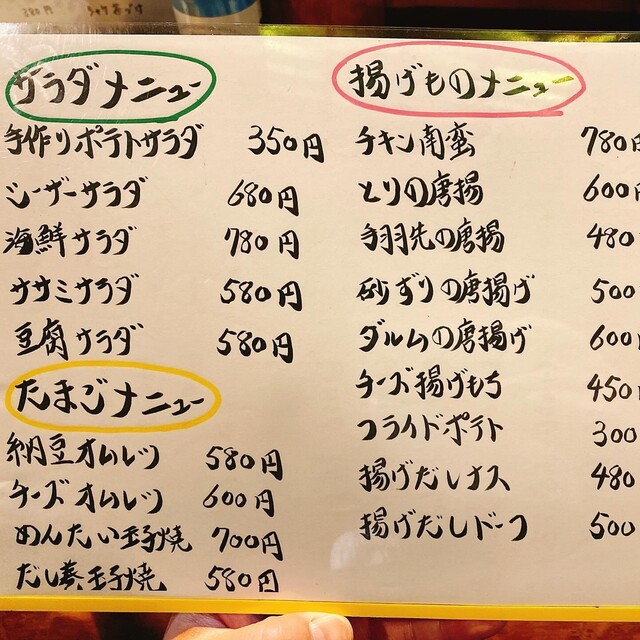 サラダメニュー
手作りポテトサラダ 350円
シーザーサラダ 680円
海鮮サラダ 780円
ササミサラダ 580円
豆腐サラダ 580円
たまごメニュー
納豆オムレツ 580円
チーズオムレツ 600円
めんたい玉子焼 700円
だし巻玉子焼 580円
揚げものメニュー
チキン南蛮 780円
とりの唐揚 600円
手羽先の唐揚 480
砂ずりの唐揚げ 500
ダルムの唐揚げ 600
チーズ揚げもち 450
フライドポテト 300
揚げだしナス 480
揚げだしドーフ 500